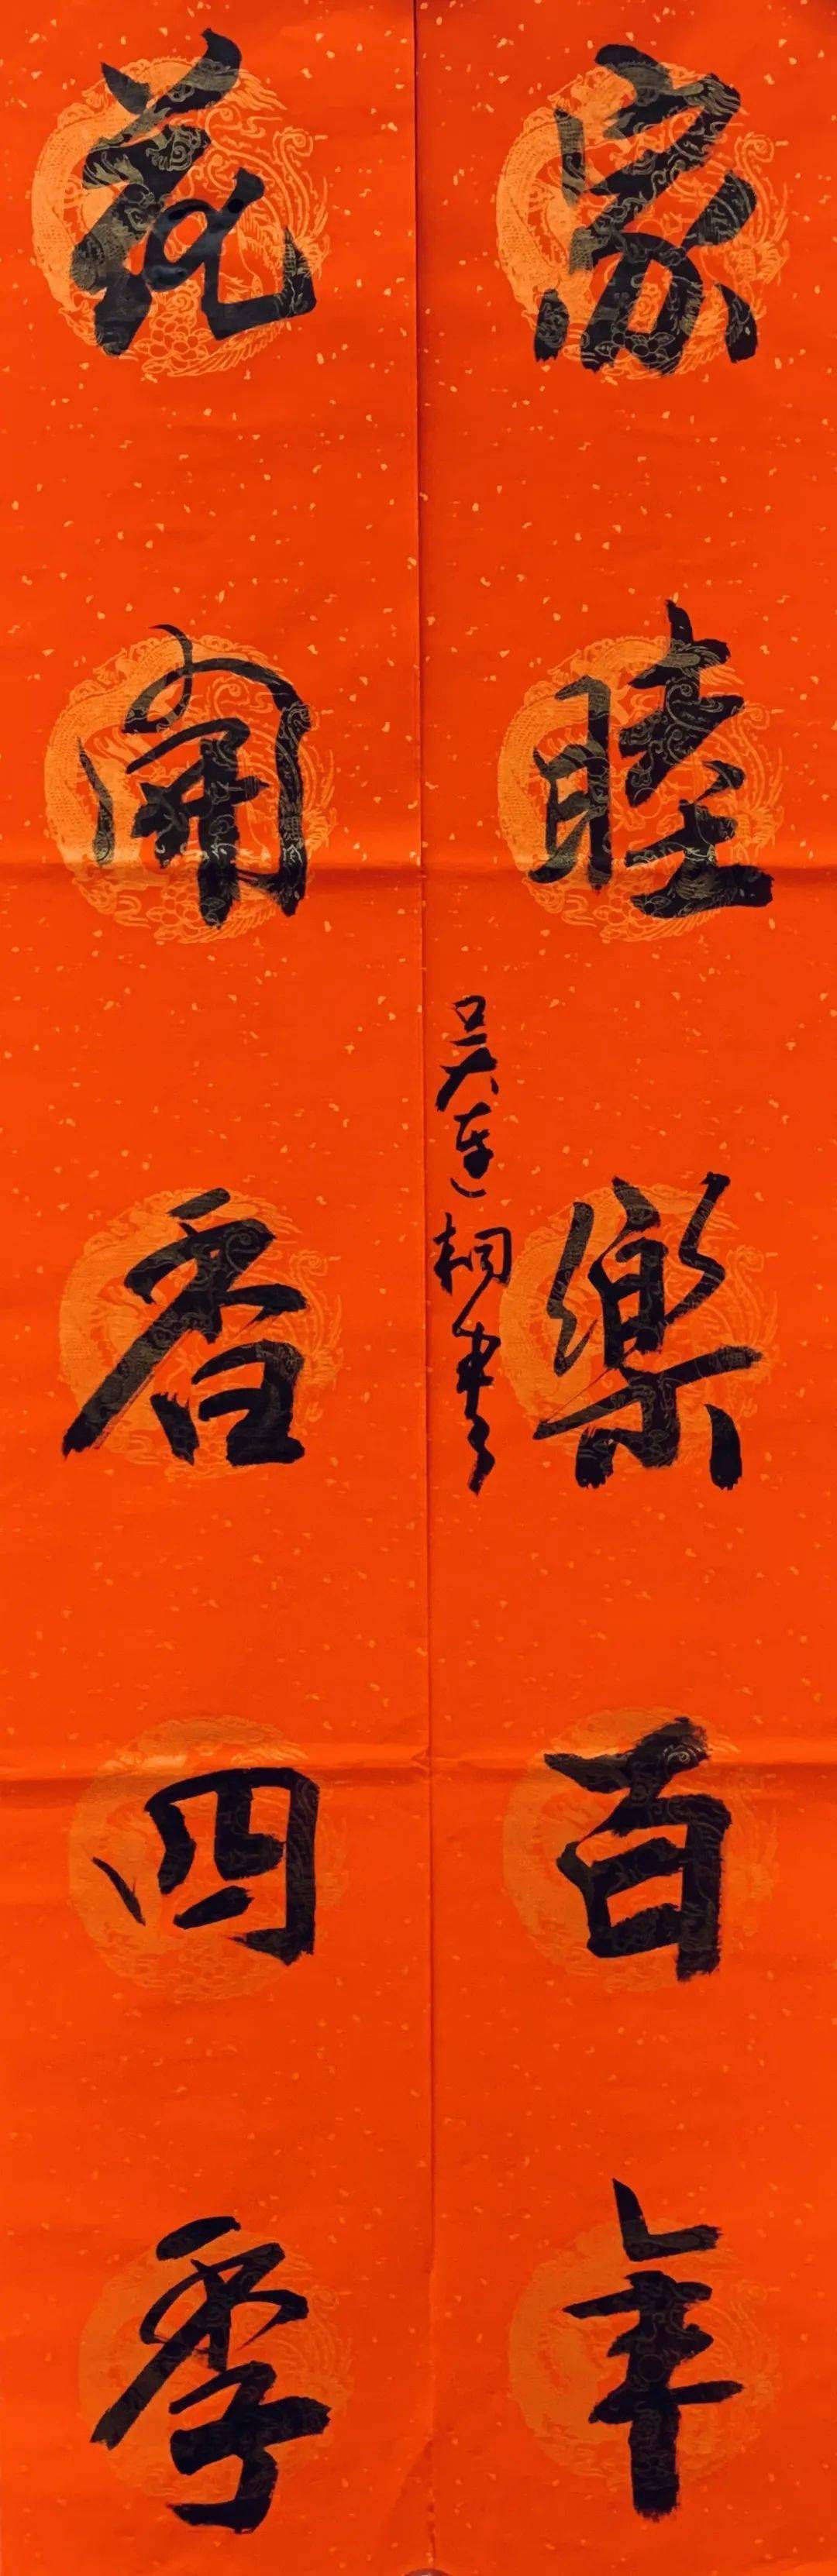 家睦樂百年
吴连桐书
花開香四季